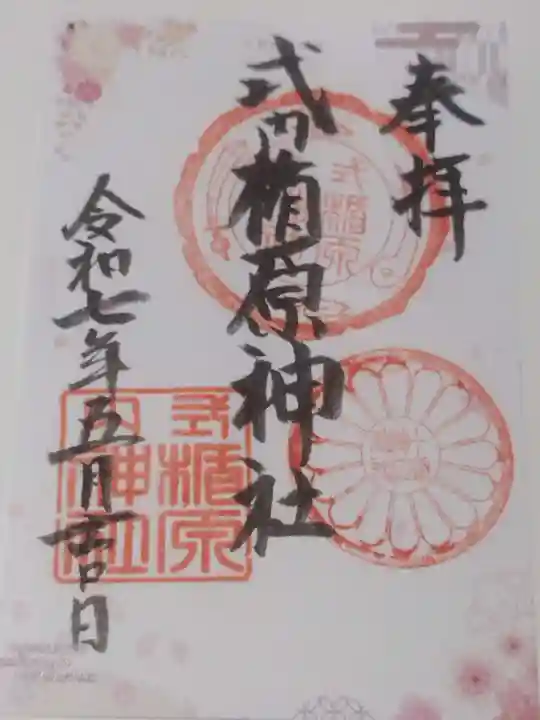 奉拝
式内楯原神社
令和七年五月吉日
式楯原
内神社